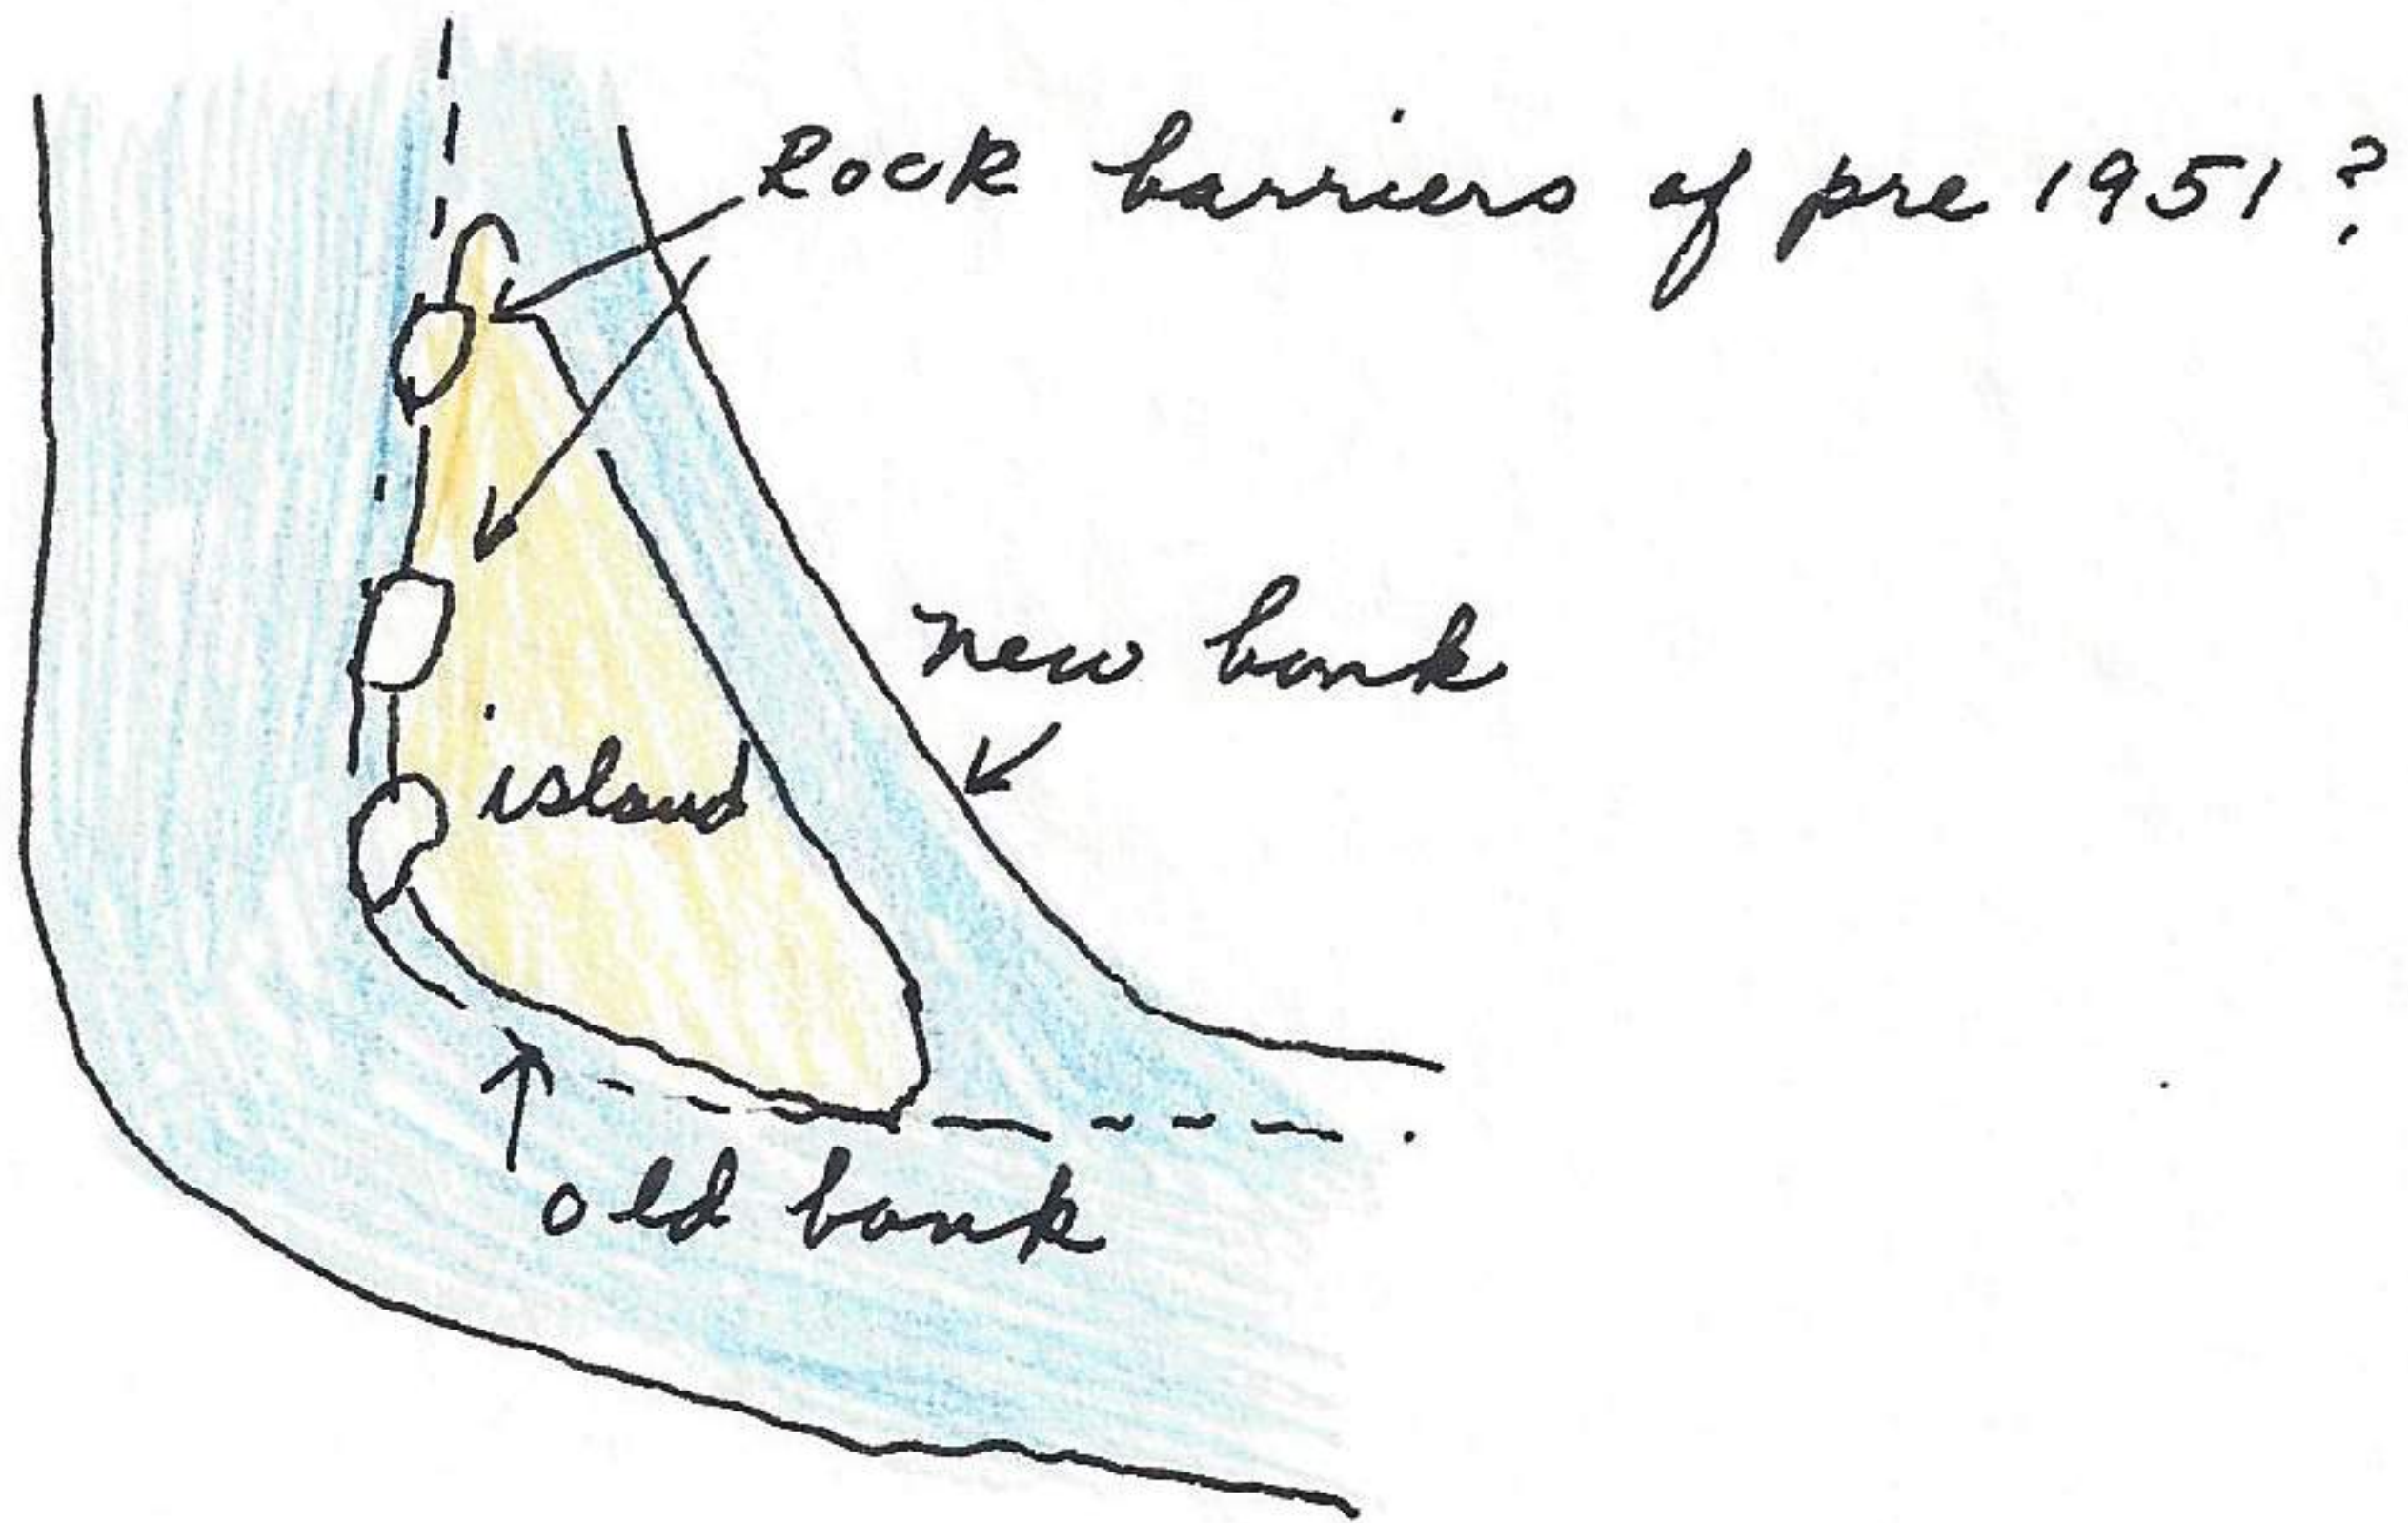 Rock barriers of pre 1951?
new bank
island
old bank